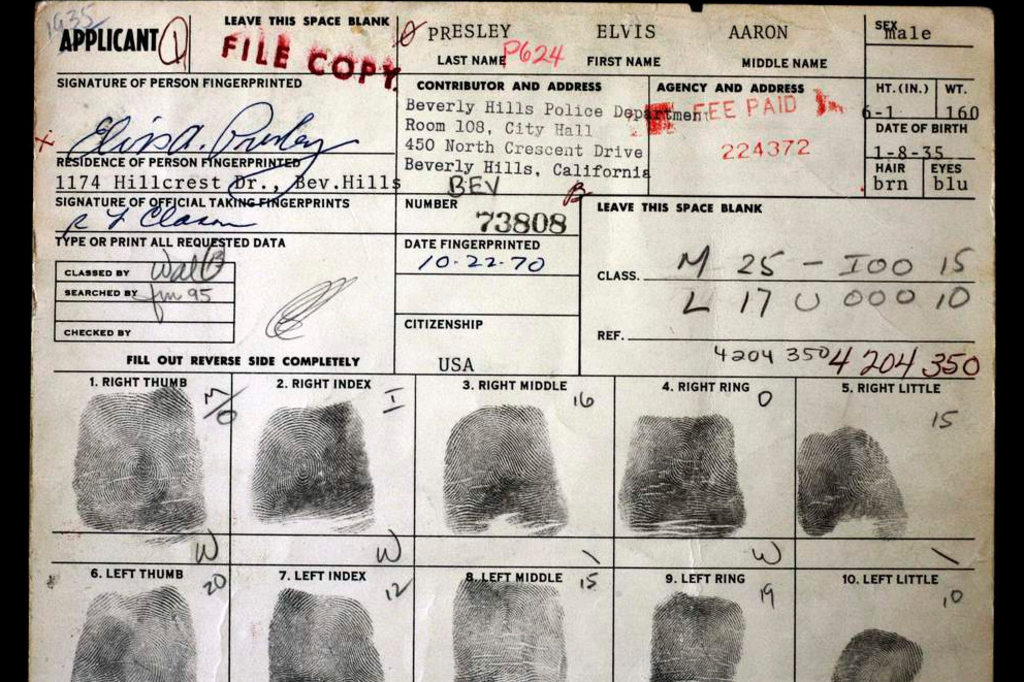 1935
APPLICANT 1
LEAVE THIS SPACE BLANK
FILE COPY
PRESLEY ELVIS AARON
P624
LAST NAME FIRST NAME MIDDLE NAME
SEX
male
SIGNATURE OF PERSON FINGERPRINTED
Elvis A. Presley
CONTRIBUTOR AND ADDRESS
Beverly Hills Police Department
Room 108, City Hall
450 North Crescent Drive
Beverly Hills, California
BEV
AGENCY AND ADDRESS
FEE PAID
224372
HT. (IN.) WT.
6-1 160
DATE OF BIRTH
1-8-35
HAIR EYES
brn blu
RESIDENCE OF PERSON FINGERPRINTED
1174 Hillcrest Dr., Bev.Hills
SIGNATURE OF OFFICIAL TAKING FINGERPRINTS
NUMBER
73808
LEAVE THIS SPACE BLANK
TYPE OR PRINT ALL REQUESTED DATA
DATE FINGERPRINTED
10-22-70
CLASSED BY
SEARCHED BY 95
CHECKED BY
CLASS. M 25 - I00 15
L 17 U 000 10
CITIZENSHIP
USA
REF.
4204 350 4 204 350
FILL OUT REVERSE SIDE COMPLETELY
1. RIGHT THUMB 2. RIGHT INDEX 3. RIGHT MIDDLE 4. RIGHT RING 5. RIGHT LITTLE
M/O I 16 O 15
W W \ W \
6. LEFT THUMB 7. LEFT INDEX 8. LEFT MIDDLE 9. LEFT RING 10. LEFT LITTLE
20 12 15 19 10